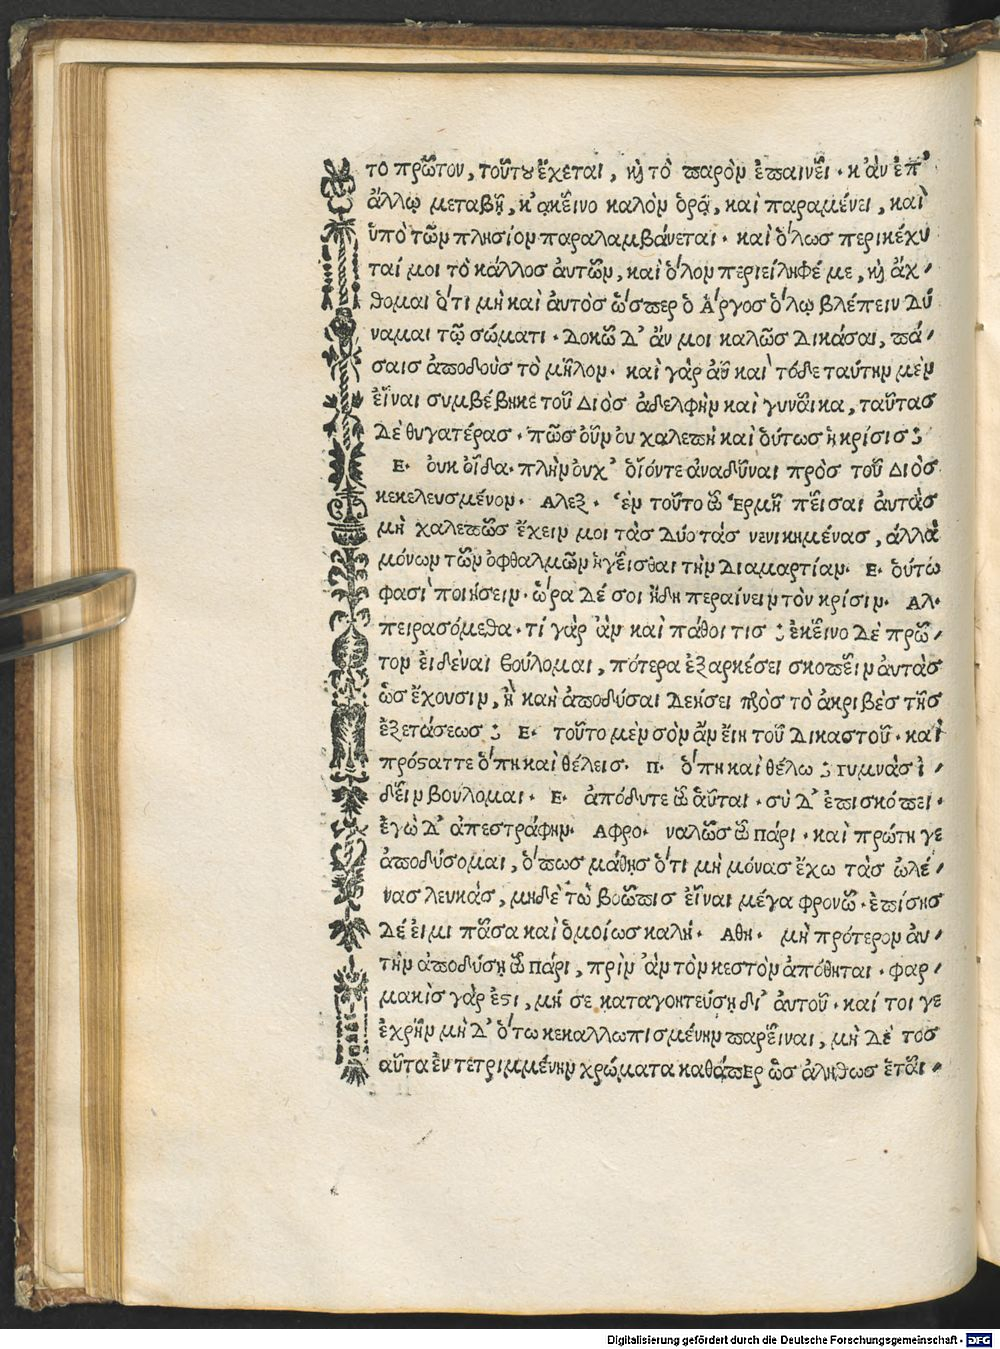 το πρῶτον, τούτου ἔχεται, καὶ τὸ παρὸν ἐπαινεῖ· κἀν ἐπ'
ἄλλῳ μεταβῇ, κἀκεῖνο καλὸν ὁρᾷ, καὶ παραμένει, καὶ
ὑπὸ τῶν πλησίον παραλαμβάνεται· καὶ ὅλως περικέχυ
ταί μοι τὸ κάλλος ἀυτῶν, καὶ ὅλον περιείληφέ με, καὶ ἄχ-
θομαι ὅτι μὴ καὶ ἀυτὸς ὥσπερ ὁ Ἄργος ὅλῳ βλέπειν δύ
ναμαι τῷ σώματι· δοκῶ δ' ἄν μοι καλῶς δικάσαι, πά-
σαις ἀποδοὺς τὸ μῆλον· καὶ γὰρ ἀῦ καὶ τόδε ταύτην μὲν
εἶναι συμβέβηκε τοῦ Διὸς ἀδελφὴν καὶ γυνᾶικα, ταῦτας
δὲ θυγατέρας· πῶς οὖν ου χαλεπὴ καὶ ὅυτως ἡ κρίσις;
Ε· ουκ οἶδα· πλὴν ουχ' ὅιόντε ἀναδῦναι πρὸς τοῦ Διὸς
κεκελευσμένον· Αλεξ· ἑν τοῦτο ὦ Ἑρμῆ πεῖσαι ἀυτὰς
μὴ χαλεπῶς ἔχειν μοι τὰς δύο τάς νενικημένας, ἀλλὰ
μόνων τῶν οφθαλμῶν ἡγεῖσθαι τὴν διαμαρτίαν· Ε· ὅυτω
φασὶ ποιήσειν· ὥρα δέ σοι ἤδη περαίνειν τὸν κρίσιν· Αλ·
πειρασόμεθα· τί γὰρ ἀν καὶ πάθοι τις; ἐκεῖνο δὲ πρῶ-
τον εἰδέναι βούλομαι, πότερα ἐξαρκέσει σκοπεῖν ἀυτὰς
ὡς ἔχουσιν, ἢ καὶ ἀποδύσαι δεήσει πρὸς τὸ ἀκριβὲς τῆς
ἐξετάσεως; Ε· τοῦτο μὲν σὸν ἂν ἔιη τοῦ δικαστοῦ· καὶ
πρόσαττε ὅπη καὶ θέλεις· Π· ὅπη καὶ θέλω; γυμνὰς ἰ-
δεῖν βούλομαι· Ε· ἀπόδυτε ὦ ἁῦται· σὺ δ' ἐπισκόπει·
ἐγὼ δ' ἀπεστράφην· Αφρο· καλῶς ὦ πάρι· καὶ πρώτη γε
ἀποδύσομαι, ὅπως μάθῃς ὅτι μὴ μόνας ἔχω τὰς ὠλέ-
νας λευκὰς, μηδὲ τῷ βοῶπις εἶναι μέγα φρονῶ· ἐπίσης
δέ ἐιμι πᾶσα καὶ ὁμοίως καλή· Αθη· μὴ πρότερον ἀυ-
τὴν ἀποδύσῃ ὦ πάρι, πρὶν ἀν τὸν κεστὸν ἀπόθηται· φαρ-
μακὶς γὰρ ἐστι, μή σε καταγοητεύσῃ δι' ἀυτοῦ· καί τοι γε
ἐχρῆν μὴ δ' ὅτω κεκαλλωπισμένην παρεῖναι, μὴ δὲ τος
αῦτα ἐντετριμμένην χρώματα καθάπερ ὡς ἀληθῶς ἑταί-
Digitalisierung gefördert durch die Deutsche Forschungsgemeinschaft - DFG